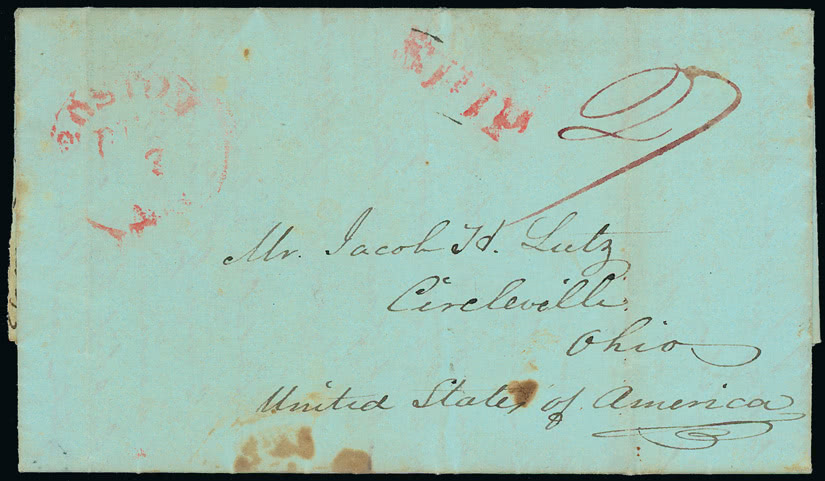 BOSTON
SHIP
Mr. Jacob H. Lutz
Circleville
Ohio
United States of America